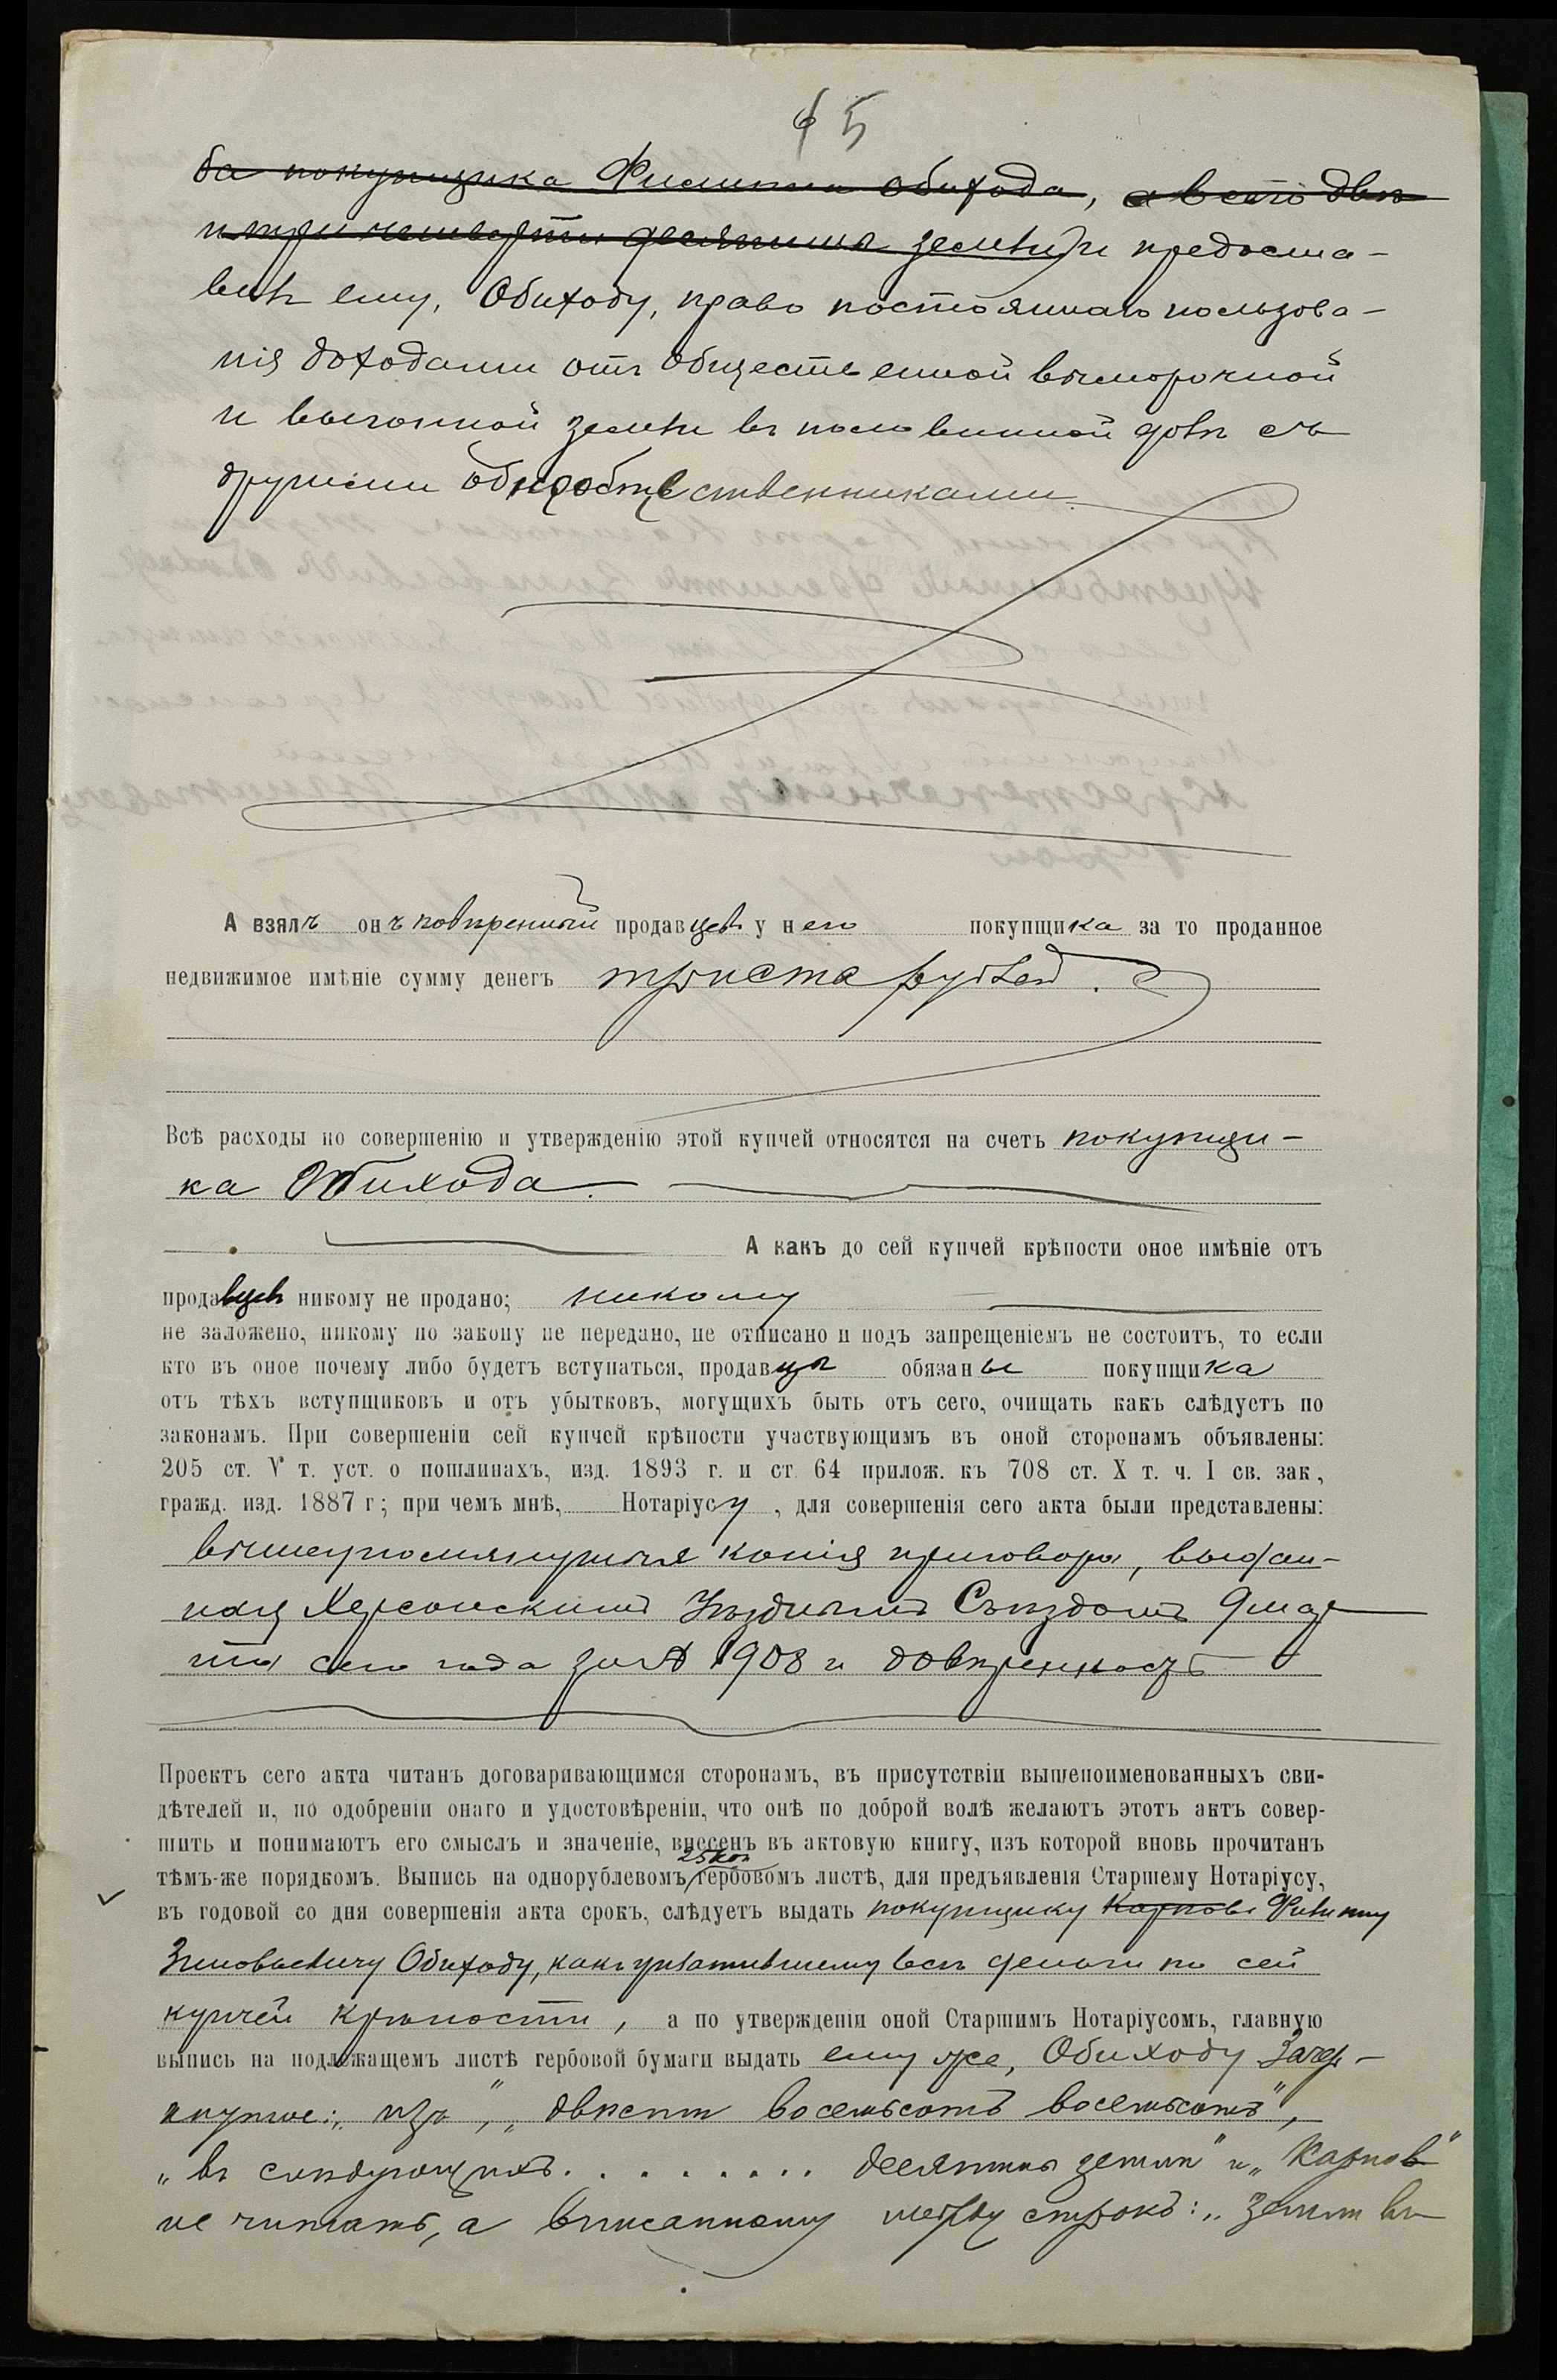 5
ба покупщика Филиппа Обихода, а всего двѣ
и три четверти десятины земли) и предоста-
вилъ ему, Обиходу, право постояннаго пользова-
нія доходами отъ общественной выморочной
и выгонной земли въ половинной долѣ съ
другими общеобщественниками.
А взялъ онъ повѣренный продавцевъ у него покупщика за то проданное
недвижимое имѣніе сумму денегъ триста рублей.
Всѣ расходы по совершенію и утвержденію этой купчей относятся на счетъ покупщи-
ка Обихода.
А какъ до сей купчей крѣпости оное имѣніе отъ
продавцевъ никому не продано; никому
не заложено, никому по закону не передано, не отписано и подъ запрещеніемъ не состоитъ, то если
кто въ оное почему либо будетъ вступаться, продавцы обязаны покупщика
отъ тѣхъ вступщиковъ и отъ убытковъ, могущихъ быть отъ сего, очищать какъ слѣдуетъ по
законамъ. При совершеніи сей купчей крѣпости участвующимъ въ оной сторонамъ объявлены:
205 ст. V т. уст. о пошлинахъ, изд. 1893 г. и ст. 64 прилож. къ 708 ст. X т. ч. I св. зак.,
гражд. изд. 1887 г; при чемъ мнѣ, Нотаріусу, для совершенія сего акта были представлены:
вышеупомянутыя копія приговора, выдан-
ная Херсонскимъ Уѣзднымъ Съѣздомъ 9 мар-
та сего года за № 1908 и довѣренность
Проектъ сего акта читанъ договаривающимся сторонамъ, въ присутствіи вышепоименованныхъ сви-
дѣтелей и, по одобреніи онаго и удостовѣреніи, что онѣ по доброй волѣ желаютъ этотъ актъ совер-
шить и понимаютъ его смыслъ и значеніе, внесенъ въ актовую книгу, изъ которой вновь прочитанъ
25 коп
тѣмъ-же порядкомъ. Выпись на однорублевомъ гербовомъ листѣ, для предъявленія Старшему Нотаріусу,
въ годовой со дня совершенія акта срокъ, слѣдуетъ выдать покупщику Карпов Филиппу
Зиновьевичу Обиходу, какъ уплатившему всѣ деньги по сей
купчей крѣпости, а по утвержденіи оной Старшимъ Нотаріусомъ, главную
выпись на подлежащемъ листѣ гербовой бумаги выдать ему же, Обиходу Зачер-
кнутое: „изъ", „двѣсти восемьсотъ восемьсотъ",
„въ слѣдующихъ......... десятины земли" и „Карпов"
не читать, а вписанному между строкъ: „земли въ